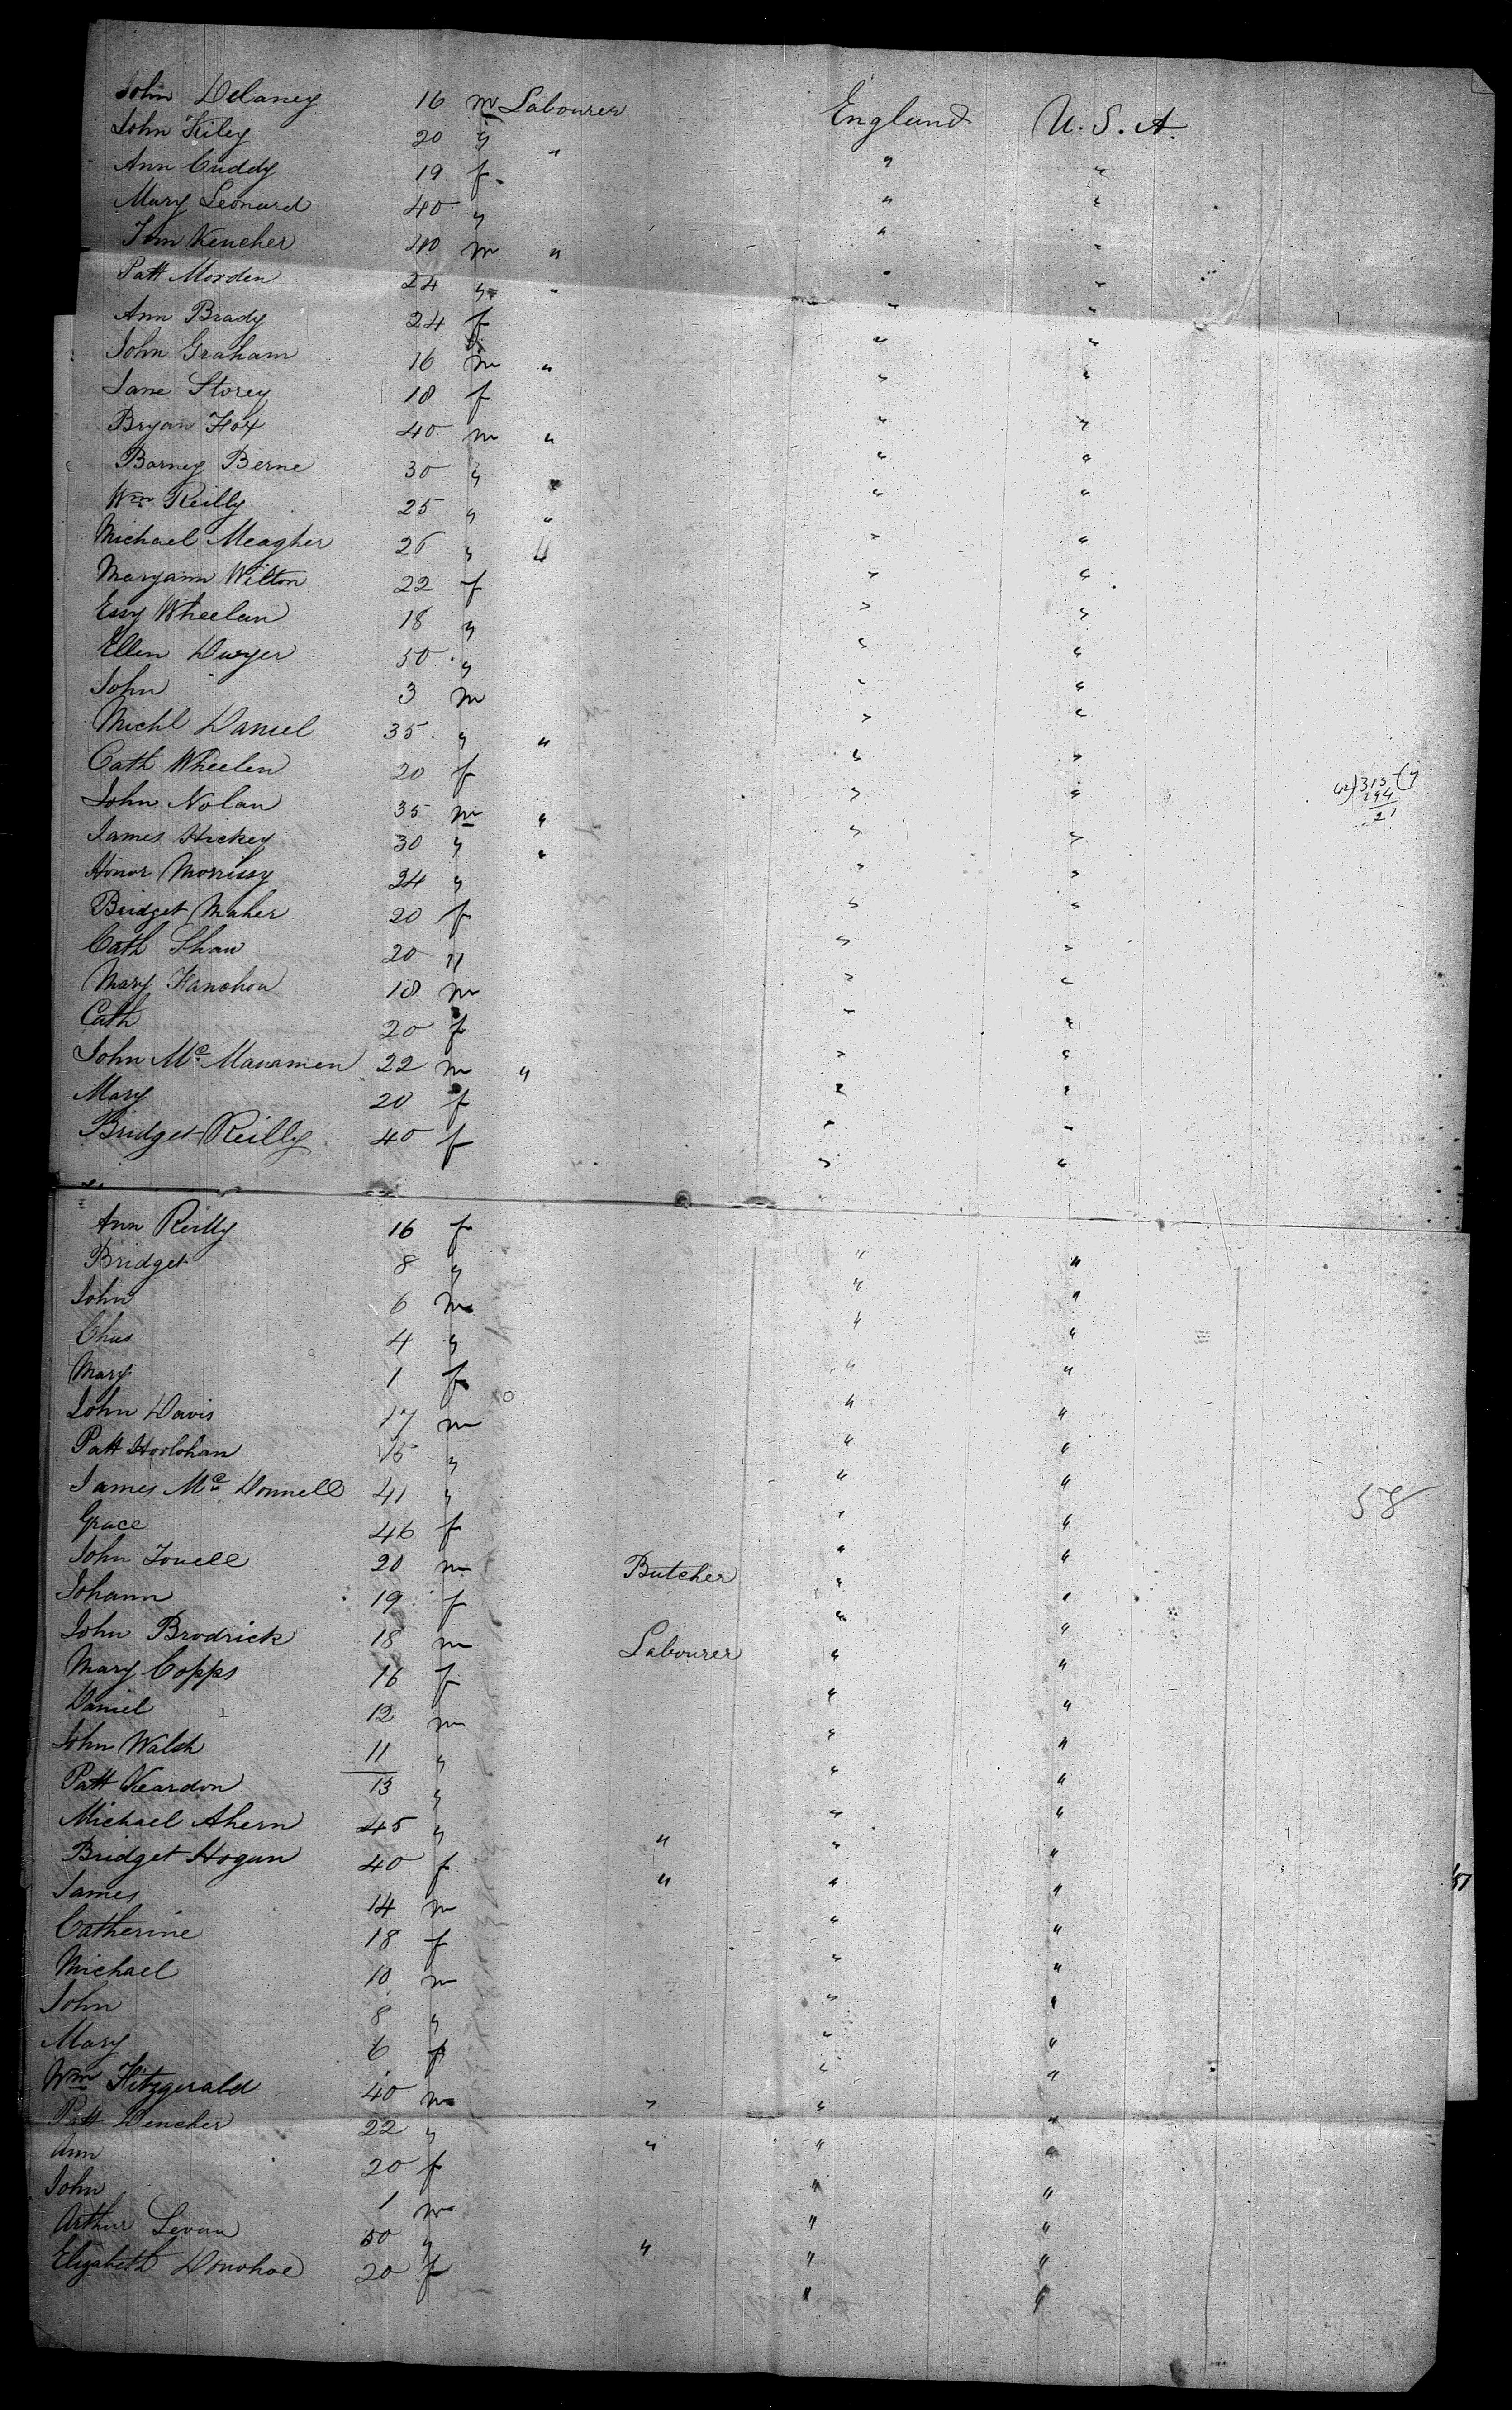 John Delaney 16 m Labourer England U.S.A.
John Kiley 20 " " " "
Ann Cuddy 19 f " "
Mary Leonard 40 " " "
Tom Kencher 40 m " " "
Patt Morden 24 " " " "
Ann Brady 24 f " "
John Graham 16 m " " "
Jane Storey 18 f " "
Bryan Fox 40 m " " "
Barney Berne 30 " " " "
Wm Reilly 25 " " " "
Michael Meagher 26 " " " "
Maryann Wilton 22 f " "
Essy Wheelan 18 " " "
Ellen Dwyer 50 " " "
John 3 m " "
Michl Daniel 35 " " " "
Cath Wheelen 20 f " "
John Nolan 35 m " " " 42)315(7
294
21
James Hickey 30 " " " "
Honor Morrissy 24 " " "
Bridget Maher 20 f " "
Cath Shaw 20 " " "
Mary Fanehon 18 m " "
Cath 20 f " "
John Mc Manamen 22 m " " "
Mary 20 f " "
Bridget Reilly 40 f " "
Ann Reilly 16 f " "
Bridget 8 " " "
John 6 m " "
Chas 4 " " "
Mary 1 f " "
John Davis 17 m " "
Patt Hoolohan 15 " " "
James Mc Donnell 41 " " " 58
Grace 46 f " "
John Touell 20 m Butcher " "
Johann 19 f " "
John Brodrick 18 m Labourer " "
Mary Copps 16 f " "
Daniel 12 m " "
John Walsh 11 " " "
Patt Keardon 13 " " "
Michael Ahern 45 " " " "
Bridget Hogan 40 f " " "
James 14 m " "
Catherine 18 f " "
Michael 10 m " "
John 8 " " "
Mary 6 f " "
Wm Fitzgerald 40 m " " "
Patt Dencher 22 " " " "
Ann 20 f " "
John 1 m " "
Arthur Levan 50 " " " "
Elizabeth Donohoe 20 f " "